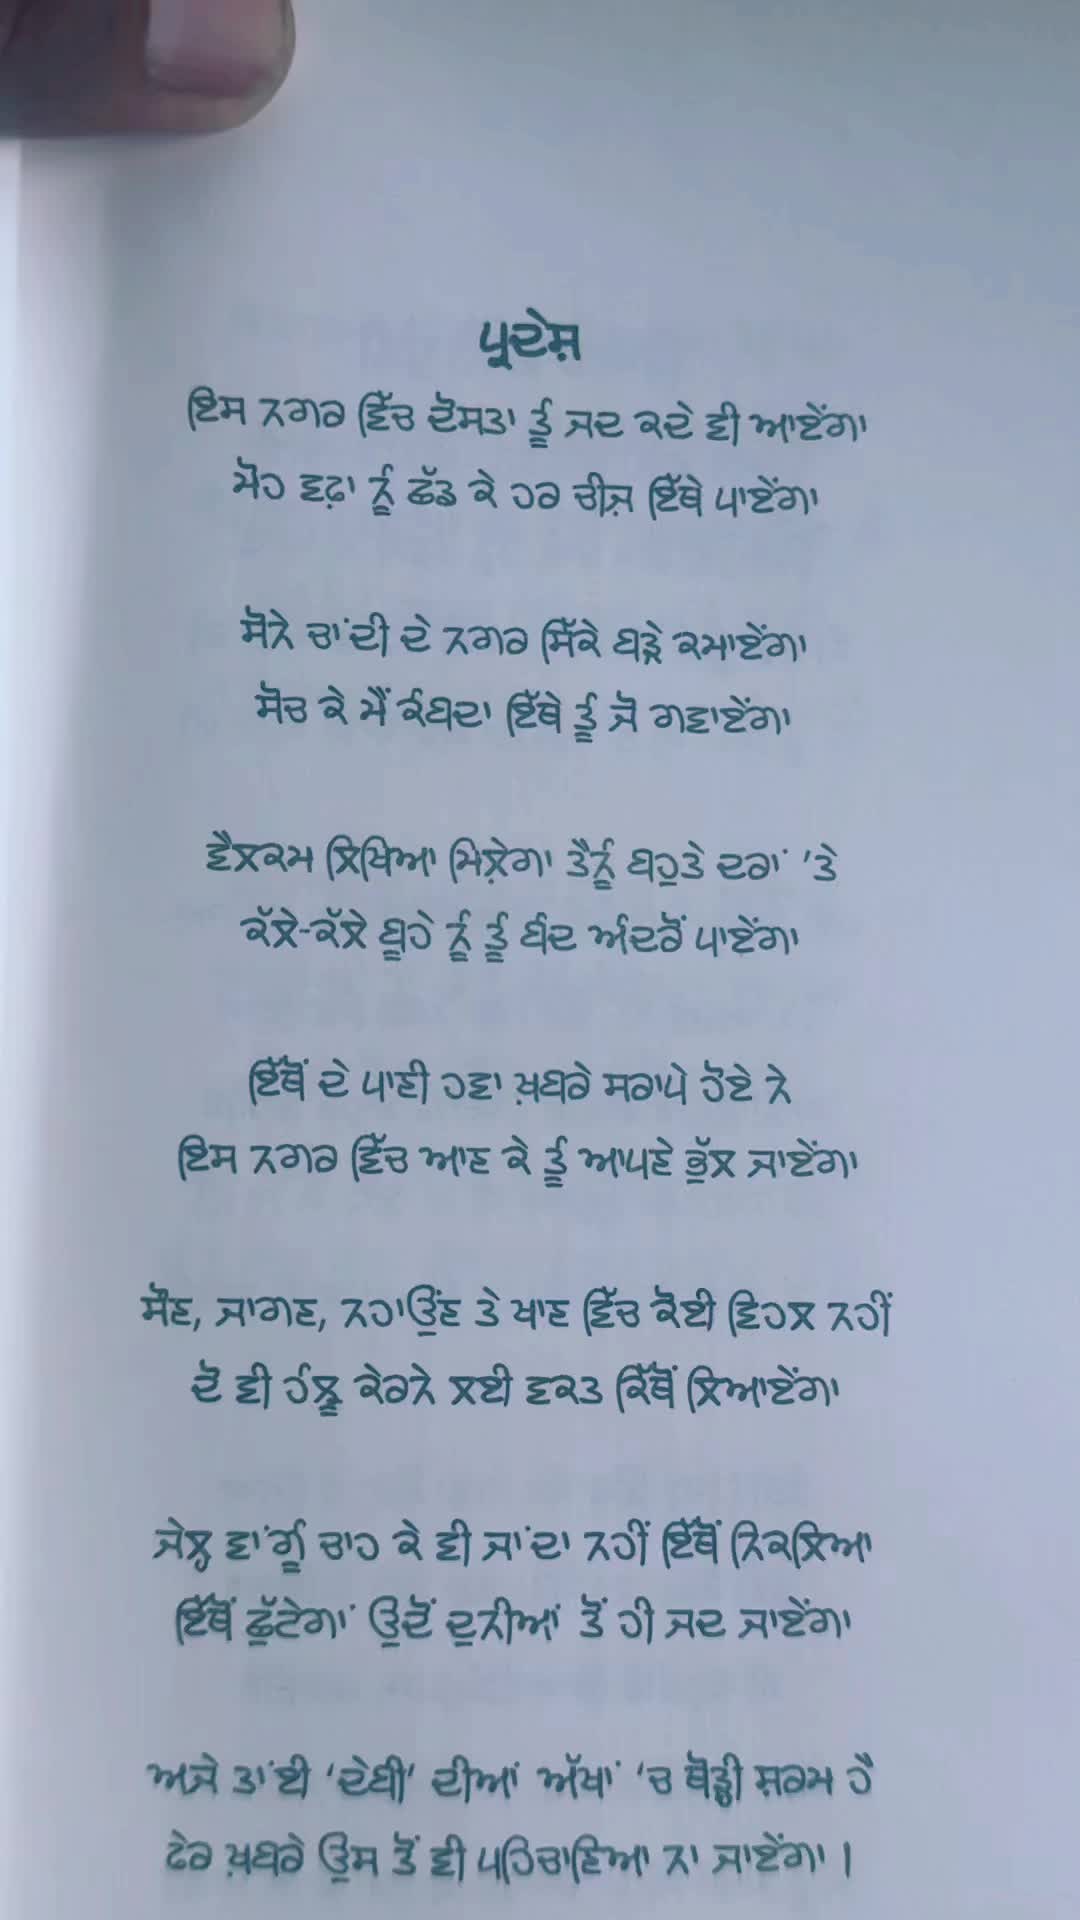 ਪ੍ਰਦੇਸ਼
ਇਸ ਨਗਰ ਵਿੱਚ ਦੋਸਤਾ ਤੂੰ ਜਦ ਕਦੇ ਵੀ ਆਏਂਗਾ
ਮੋਹ ਵਫ਼ਾ ਨੂੰ ਛੱਡ ਕੇ ਹਰ ਚੀਜ਼ ਇੱਥੇ ਪਾਏਂਗਾ
ਸੋਨੇ ਚਾਂਦੀ ਦੇ ਨਗਰ ਸਿੱਕੇ ਬੜੇ ਕਮਾਏਂਗਾ
ਸੋਚ ਕੇ ਮੈਂ ਕੰਬਦਾ ਇੱਥੇ ਤੂੰ ਜੋ ਗਵਾਏਂਗਾ
ਵੈਲਕਮ ਲਿਖਿਆ ਮਿਲੇਗਾ ਤੈਨੂੰ ਬਹੁਤੇ ਦਰਾਂ 'ਤੇ
ਕੱਲੇ-ਕੱਲੇ ਬੂਹੇ ਨੂੰ ਤੂੰ ਬੰਦ ਅੰਦਰੋਂ ਪਾਏਂਗਾ
ਇੱਥੋਂ ਦੇ ਪਾਣੀ ਹਵਾ ਖ਼ਬਰੇ ਸਰਾਪੇ ਹੋਏ ਨੇ
ਇਸ ਨਗਰ ਵਿੱਚ ਆਣ ਕੇ ਤੂੰ ਆਪਣੇ ਭੁੱਲ ਜਾਏਂਗਾ
ਸੌਣ, ਜਾਗਣ, ਨਹਾਉਂਣ ਤੇ ਖਾਣ ਵਿੱਚ ਕੋਈ ਵਿਹਲ ਨਹੀਂ
ਦੋ ਵੀ ਹੰਝੂ ਕੇਰਨੇ ਲਈ ਵਕਤ ਕਿੱਥੋਂ ਲਿਆਏਂਗਾ
ਜੇਲ੍ਹ ਵਾਂਗੂੰ ਚਾਹ ਕੇ ਵੀ ਜਾਂਦਾ ਨਹੀਂ ਇੱਥੋਂ ਨਿਕਲਿਆ
ਇੱਥੋਂ ਛੁੱਟੇਗਾਂ ਉਦੋਂ ਦੁਨੀਆਂ ਤੋਂ ਹੀ ਜਦ ਜਾਏਂਗਾ
ਅਜੇ ਤਾਂਈ 'ਦੇਬੀ' ਦੀਆਂ ਅੱਖਾਂ 'ਚ ਥੋੜ੍ਹੀ ਸ਼ਰਮ ਹੈ
ਫੇਰ ਖ਼ਬਰੇ ਉਸ ਤੋਂ ਵੀ ਪਹਿਚਾਣਿਆ ਨਾ ਜਾਏਂਗਾ ।